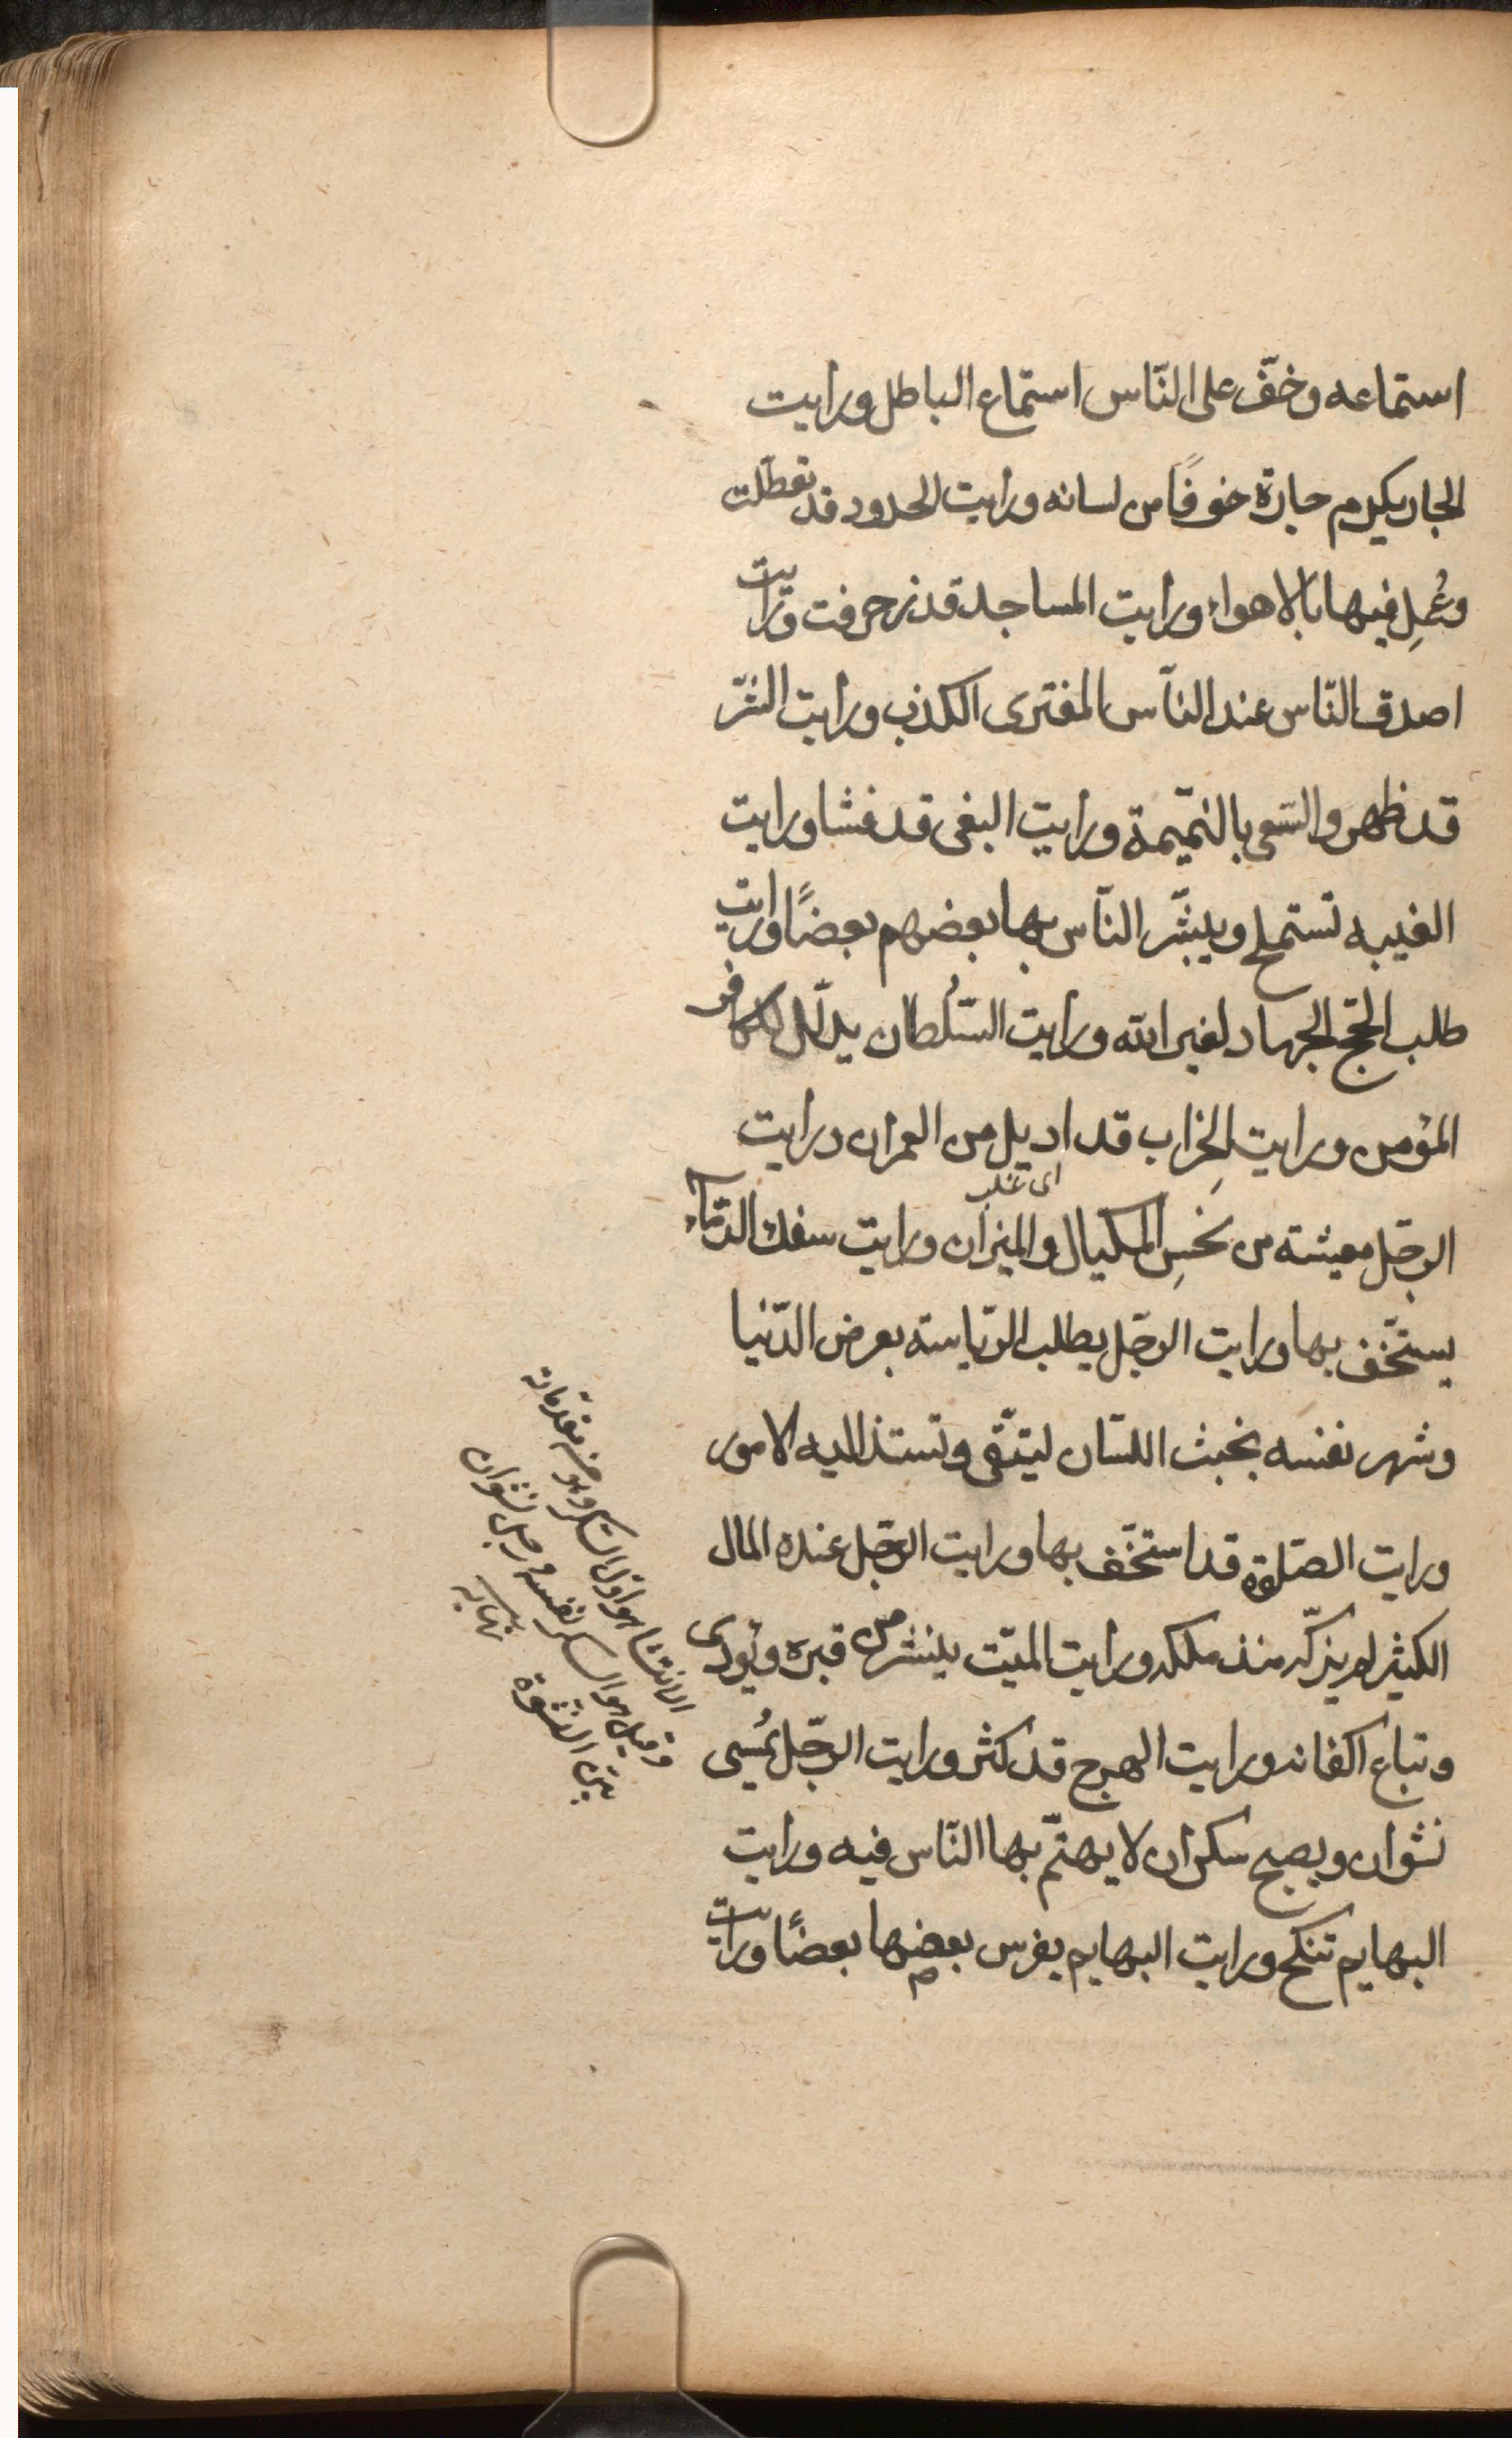 استماعه وخفّ على النّاس استماع الباطل ورايت
الجار يكرم جاره خوفًا من لسانه ورايت الحدود قد تعطّلت
وعُمِل فيها بالاهواء ورايت المساجد قد زخرفت ورايت
اصدق النّاس عند النّاس المفترى الكذب ورايت الشّر
قد ظهر والسّعى بالنّميمة ورايت البغى قد فشا ورايت
الغيبه تستملح ويبشّر النّاس بها بعضهم بعضًا ورايت
طلب الحجّ الجهاد لغير الله ورايت السّلُطان يذلّل للكافر
المؤمن ورايت الخِراب قد اديل من العمران ورايت
اى غلب
الرجّل معيشته من بخسِ المكيال والميزان ورايت سفك الدّماء
يستخّف بها ورايت الرجّل يطلب الرّياسته بعرض الدّنيا
وشهر نفسه بخبث اللسّان ليتّقى وتستند اليه الامور
ورايت الصّلوة قد استخّف بها ورايت الرجّل عنده المال
الكثير لم يزكّه منذ ملكه ورايت الميّت ينشر من قبره ويؤدى
وتباع اكفانه ورايت الهرج قد كثر ورايت الرجّل يمُسى
نشوان ويصبح سكران لا يهتمّ بها النّاس فيه ورايت
البهايم تنكح ورايت البهايم يفرس بعضها بعضًا ورايت
الانتشا هو اوّل السّكر ومقدّماته
وقيل هو السكر نفسه ورجل نشوان
بيّن النشوة نهايه